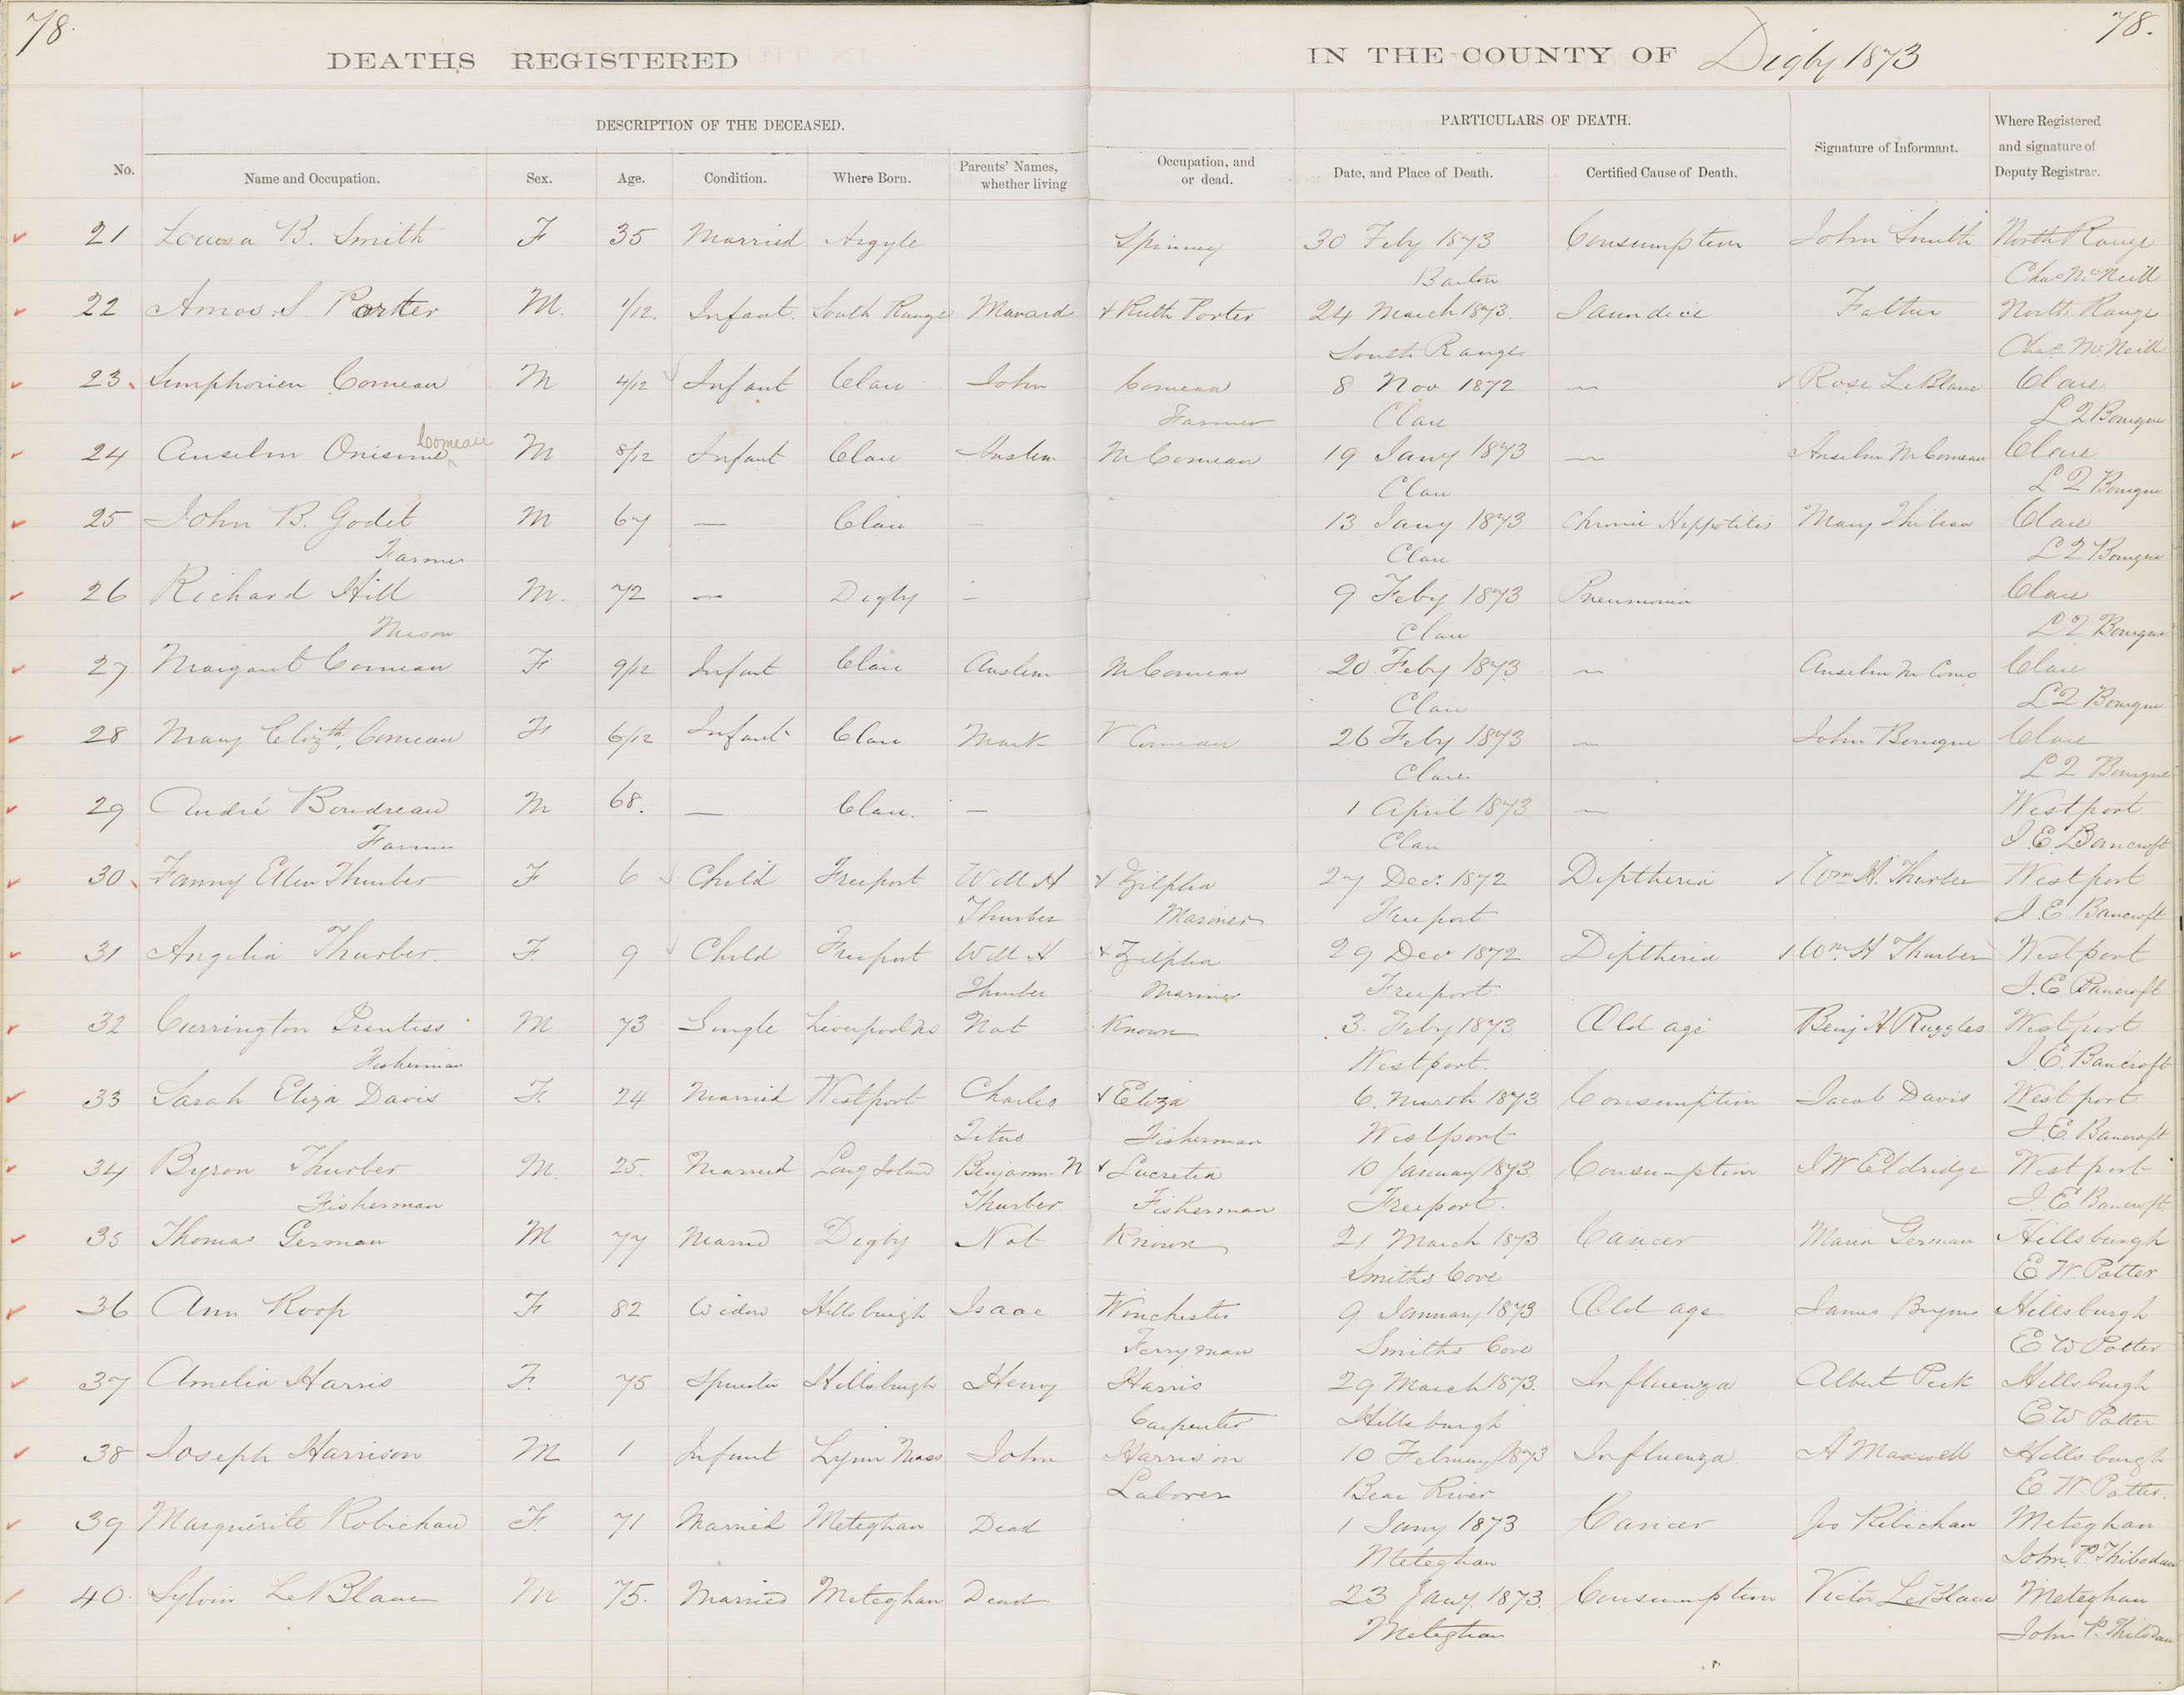 78.
78.
DEATHS REGISTERED IN THE COUNTY OF Digby 1873
DESCRIPTION OF THE DECEASED. PARTICULARS OF DEATH.
No. Name and Occupation. Sex. Age. Condition. Where Born. Parents' Names, whether living Occupation, and or dead. Date, and Place of Death. Certified Cause of Death. Signature of Informant. Where Registered and signature of Deputy Registrar.
21 Louisa B. Smith F 35 Married Argyle Spinney 30 Feby 1873 Consumption John Smith North Range
Barton Chas McNeill
22 Amos S. Porter M. 1/12. Infant. South Range Manard & Ruth Porter 24 March 1873. Jaundice Father North Range
South Range Chas McNeill
23 Simphorien Comeau M 4/12 Infant Clare John Comeau 8 Nov 1872 — Rose LeBlanc Clare
Farmer Clare L Q Bourque
24 Anselm Onisime Comeau M 8/12 Infant Clare Anslem M Comeau 19 Jany 1873 — Anselm M Comeau Clare
Clare L Q Bourque
25 John B. Godet M 67 — Clare — 13 Jany 1873 Chronic Heppotites Mary Thibeau Clare
Farmer Clare L Q Bourque
26 Richard Hill M. 72 — Digby — 9 Feby 1873 Pneumonia Clare
Mason Clare L Q Bourque
27 Margaret Comeau F 9/12 Infant Clare Anslem M Comeau 20 Feby 1873 — Anselm M Como Clare
Clare L Q Bourque
28 Mary Elizth. Comeau F 6/12 Infant Clare Mark V Comeau 26 Feby 1873 — John Bourque Clare
Clare L Q Bourque
29 André Boudreau M 68. — Clare. — 1 April 1873 — Westport
Farmer Clare J. E. Bancroft
30 Fanny Ellen Thurber F 6 Child Freeport Will H & Zilpha 27 Dec. 1872 Diptheria Wm H. Thurber Westport
Thurber Mariner Freeport J. E. Bancroft
31 Angelia Thurber. F. 9 Child Freeport Will H & Zilpha 29 Dec 1872 Diptheria Wm. H Thurber Westport
Thurber Mariner Freeport. J. E. Bancroft
32 Currington Prentiss M 73 Single Liverpool NS Not Known 3. Feby 1873 Old age Benj H Ruggles Westport
Fisherman Westport. J. E. Bancroft
33 Sarah Eliza Davis F. 24 Married Westport Charles & Eliza 6. March 1873 Consumption Jacob Davis Westport
Titus Fisherman Westport J. E. Bancroft
34 Byron Thurber M. 25. Married Long Island Benjamin N & Lucretia 10 January 1873 Consumption J W Eldridge Westport
Fisherman Thurber Fisherman Freeport. J. E. Bancroft
35 Thomas German M 77 Married Digby Not Known 21 March 1873 Cancer Maria German Hillsburgh
Smiths Cove E W. Potter
36 Ann Roop F 82 Widow Hillsburgh Isaac Winchester 9 January 1873 Old age James Hillsburgh
Ferryman Smiths Cove E W Potter
37 Amelia Harris F. 75 Spinster Hillsburgh Henry Harris 29 March 1873. Influenza Albert Peck Hillsburgh
Carpenter Hillsburgh E W Potter
38 Joseph Harrison M 1 Infant Lynn Mass John Harrison 10 February 1873 Influenza A Maxwell Hillsburgh
Laborer Bear River E W. Potter.
39 Marguérite Robichau F. 71 Married Meteghan Dead 1 Jany 1873 Cancer Jos Ribichau Meteghan
Meteghan John P. Thibodeau
40. Sylvin LeBlanc M 75. Married Meteghan Dead 23 Jany. 1873. Consumption Victor LeBlanc Meteghan
Meteghan John P. Thibodeau